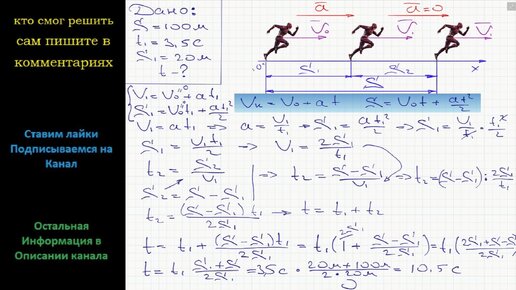 кто смог решить
сам пишите в
комментариях
Ставим лайки
Подписываемся на
Канал
Остальная
Информация в
Описании канала
Дано:
S = 100м
t₁ = 3,5с
S₁ = 20м
t - ?
a⃗ a⃗ = 0
V⃗₀ V⃗₁ V⃗₁
0 S₁ S₂ x
S
Vк = V₀ + at S = V₀t + at²/2
V₁ = V₀ + at₁
S₁ = V₀t₁ + at₁²/2
V₁ = at₁ ⇒ a = V₁/t₁ → S₁ = at₁²/2 ⇒ S₁ = V₁/t₁ · t₁²/2
S₁ = V₁t₁/2 ⇒ V₁ = 2S₁/t₁
t₂ = S₂/V₁ ⇒ t₂ = (S - S₁)/V₁ ⇒ t₂ = (S - S₁) : 2S₁/t₁
S₂ = S - S₁
t₂ = (S - S₁)t₁/2S₁ → t = t₁ + t₂
t = t₁ + (S - S₁)t₁/2S₁ = t₁(1 + (S - S₁)/2S₁) = t₁(2S₁ + S - S₁
t = t₁ (S₁ + S)/2S₁ = 3,5с · (20м + 100м)/(2·20м) = 10,5с